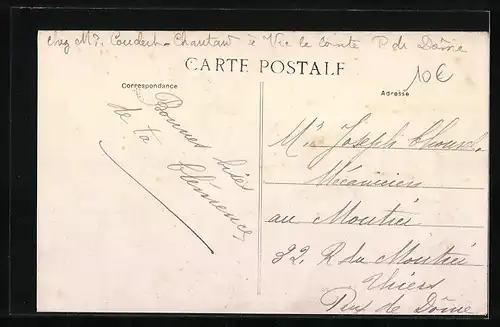 chez Mr. Coudert-Chautard à Vic le Comte P. de Dôme
CARTE POSTALE
10€
Correspondance
Adresse
Bonnes bises
de ta
Clémence
Mr Joseph
Mécanicien
au Moutier
32. R du Moutier
Thiers
Puy de Dôme